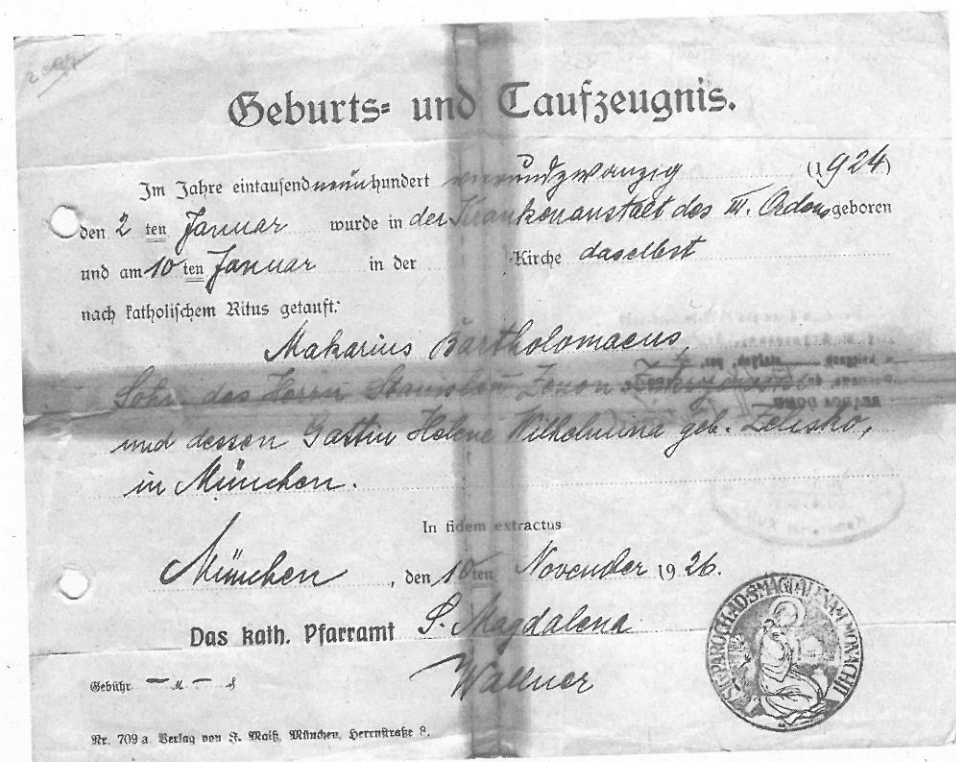 Geburts- und Taufzeugnis.
Im Jahre eintausend neunhundert vierundzwanzig (1924)
den 2 ten Januar wurde in der Krankenanstalt des III. Ordens geboren
und am 10 ten Januar in der -Kirche daselbst
nach katholischem Ritus getauft:
Makarius Bartholomaeus,
Sohn des Herrn Stanislaus Zenon
und dessen Gattin Helene Wilhelmina geb. Zelisko,
in München.
In fidem extractus
München, den 10 ten November 1926.
Das kath. Pfarramt S. Magdalena
Wallner
Gebühr
Nr. 709 a Verlag von F. Maiß, München, Herrnstraße 8.
SIG. PAROCH. AD S. MAGDALENAM MONACHII